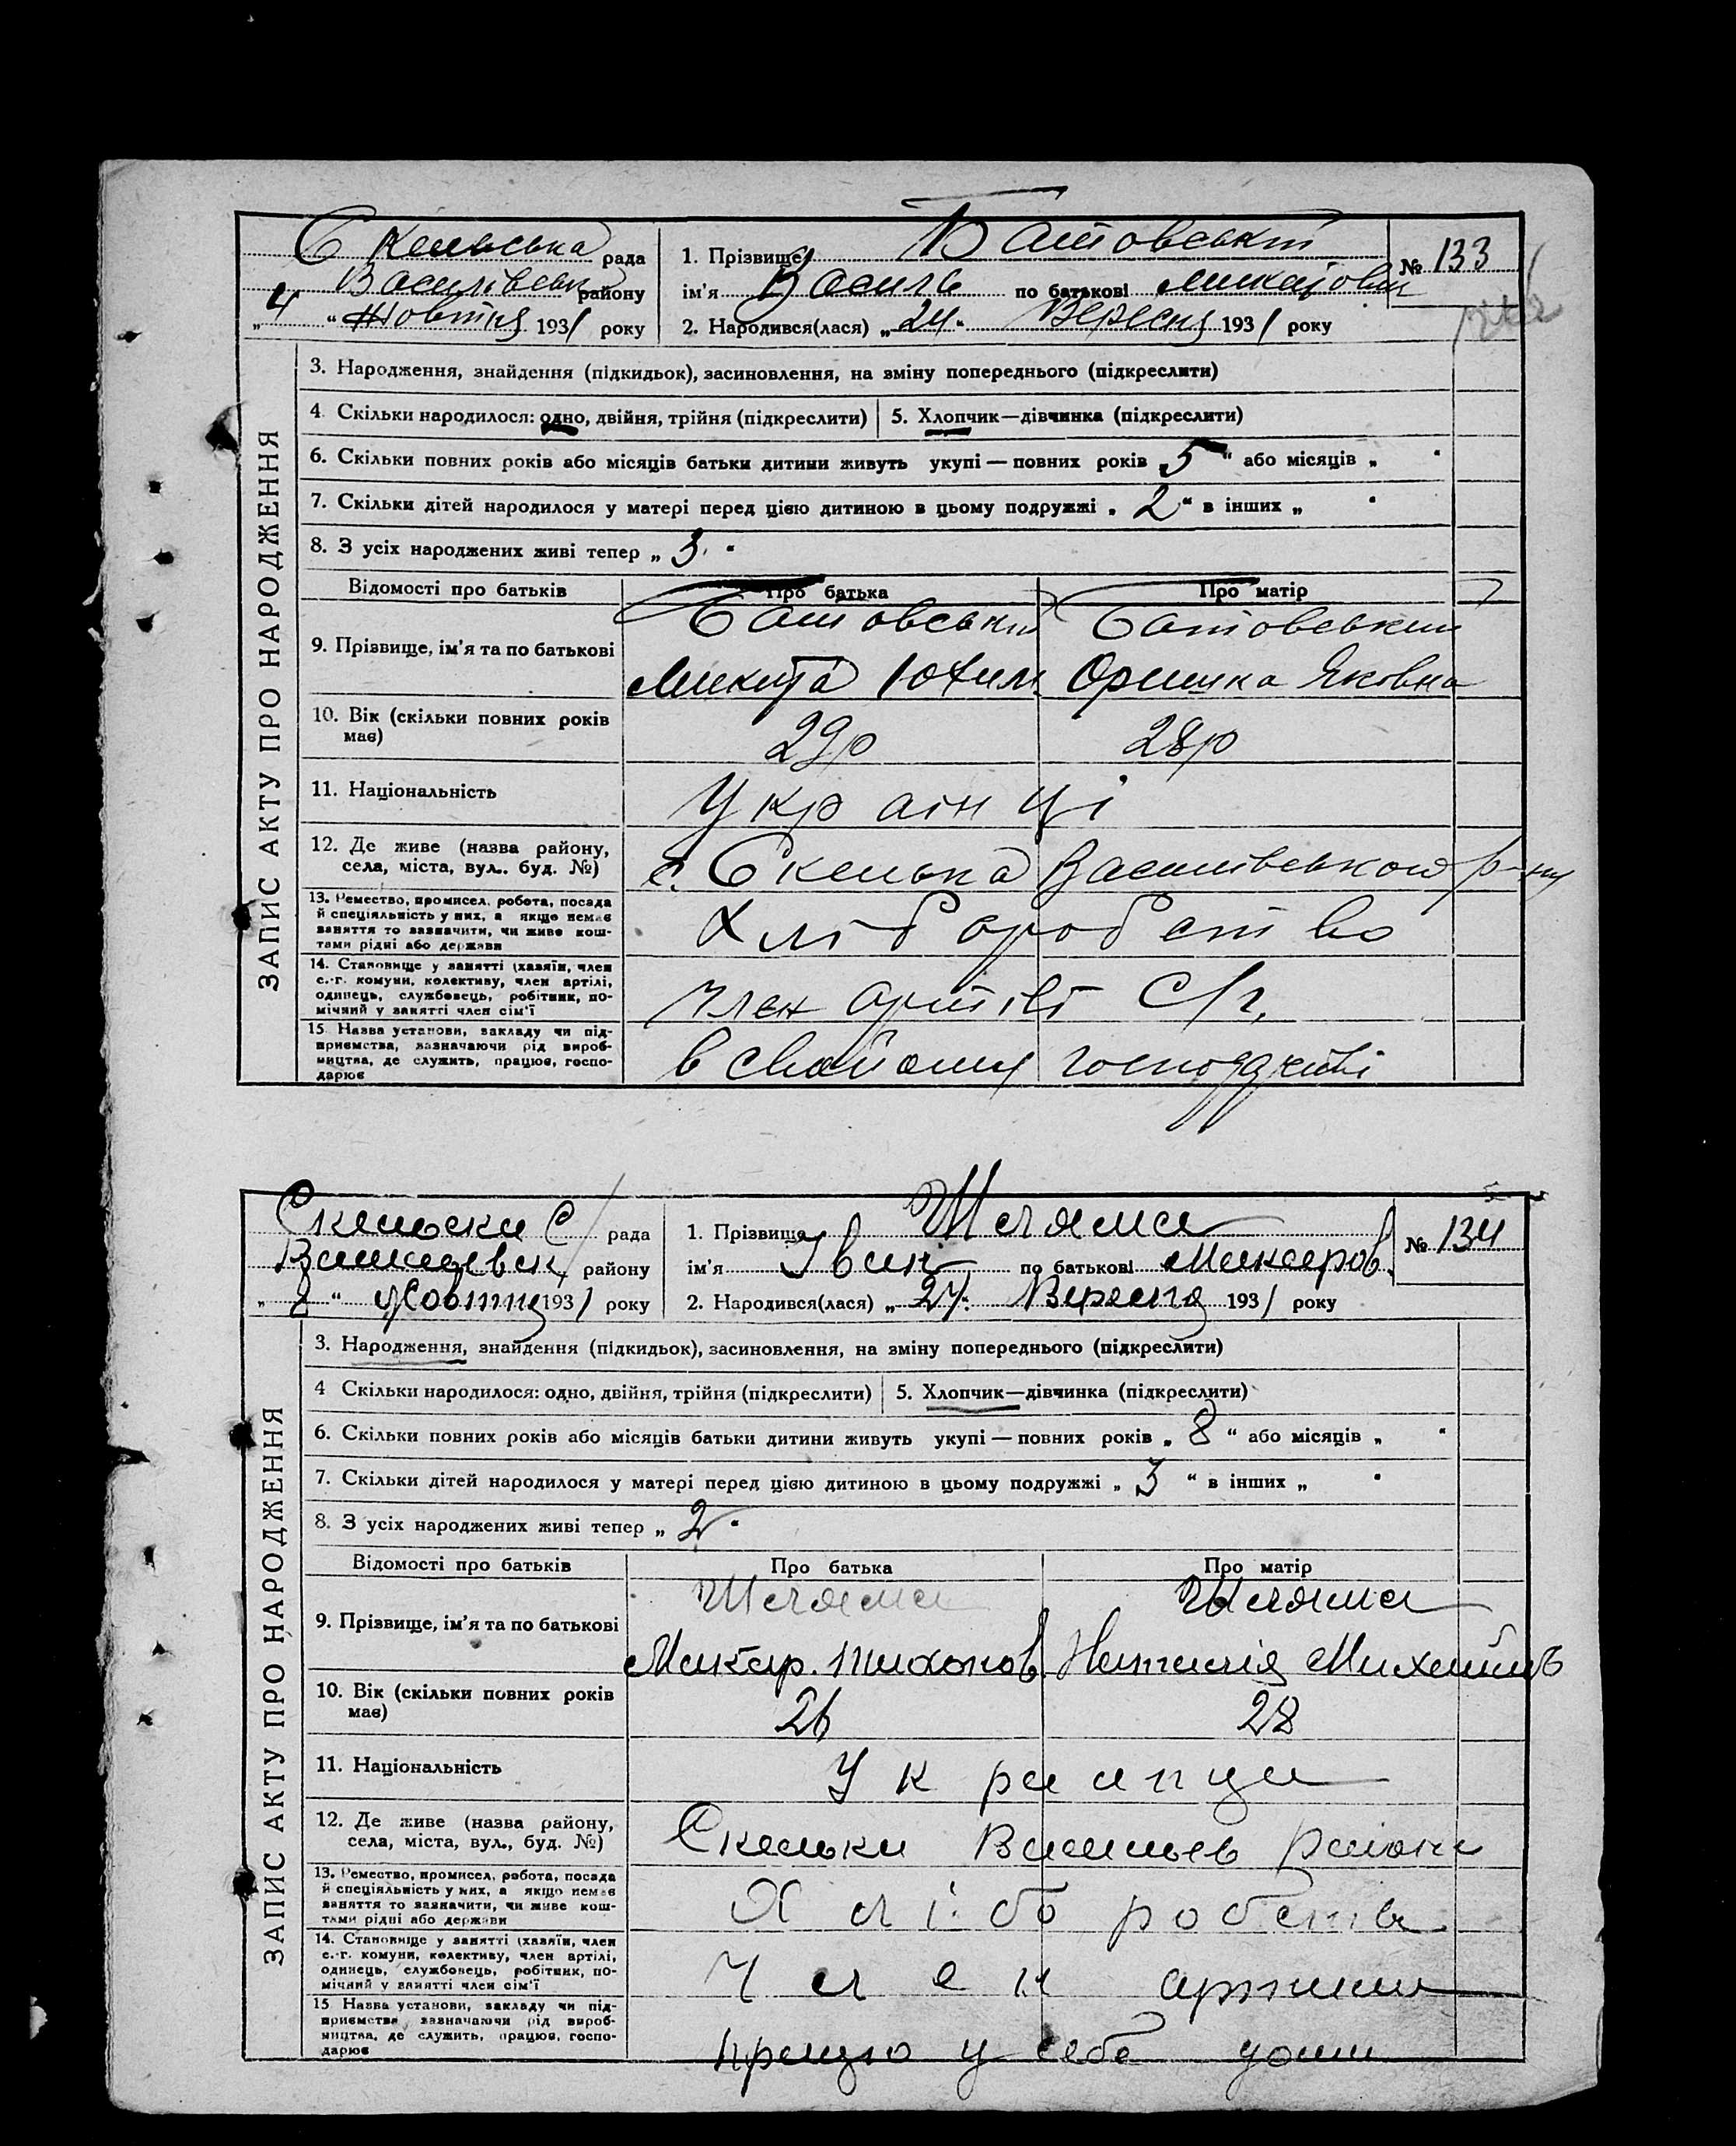 ЗАПИС АКТУ ПРО НАРОДЖЕННЯ
Скельська рада
Василівськ району
„4“ Жовтня 1931 року
1. Прізвище Батовський
ім'я Василь по батькові Микитович
2. Народився(лася) „24“ Вересня 1931 року
№ 133
3. Народження, знайдення (підкидьок), засиновлення, на зміну попереднього (підкреслити)
4. Скільки народилося: одно, двійня, трійня (підкреслити)
5. Хлопчик—дівчинка (підкреслити)
6. Скільки повних років або місяців батьки дитини живуть укупі — повних років „5“ або місяців „ “
7. Скільки дітей народилося у матері перед цією дитиною в цьому подружжі „2“ в інших „ “
8. З усіх народжених живі тепер „3“
Відомості про батьків Про батька Про матір
9. Прізвище, ім'я та по батькові
Батовський Батовськи
Микита Юхим Оришка Яковна
10. Вік (скільки повних років має)
29р 28р
11. Національність
Українці
12. Де живе (назва району, села, міста, вул. буд. №)
с. Скелька Василівського р-ну
13. Ремество, промисел, робота, посада й спеціяльність у них, а якщо немає заняття то зазначити, чи живе коштами рідні або держави
Хліборобство
14. Становище у занятті (хазяїн, член с.-г. комуни, колективу, член артілі, одинець, службовець, робітник, помічний у занятті член сім'ї
член артілі С/г.
15 Назва установи, закладу чи підприємства, зазначаючи рід виробництва, де служить, працює, господарює
в свойому господарстві
ЗАПИС АКТУ ПРО НАРОДЖЕННЯ
Скельски С/ рада
Василевск району
„2“ Жовтня 1931 року
1. Прізвище Шляма
ім'я Іван по батькові Макаров.
2. Народився(лася) „24“ Вересня 1931 року
№ 134
3. Народження, знайдення (підкидьок), засиновлення, на зміну попереднього (підкреслити)
4 Скільки народилося: одно, двійня, трійня (підкреслити)
5. Хлопчик—дівчинка (підкреслити)
6. Скільки повних років або місяців батьки дитини живуть укупі — повних років „8“ або місяців „ “
7. Скільки дітей народилося у матері перед цією дитиною в цьому подружжі „3“ в інших „ “
8. З усіх народжених живі тепер „2“
Відомості про батьків Про батька Про матір
9. Прізвище, ім'я та по батькові
Шляма Шляма
Макар. Тихонов. Наталія Михайлов
10. Вік (скільки повних років має)
26 28
11. Національність
Украинци
12. Де живе (назва району, села, міста, вул., буд. №)
Скельки Васильев района
13. Ремество, промисел, робота, посада й спеціяльність у них, а якщо немає заняття то зазначити, чи живе коштами рідні або держави
Хліборобств
14. Становище у занятті (хазяїн, член с.-г. комуни, колективу, член артілі, одинець, службовець, робітник, помічний у занятті член сім'ї
Член артили
15 Назва установи, закладу чи підприємства зазначаючи рід виробництва, де служить, працює, господарює
працю у себе дома